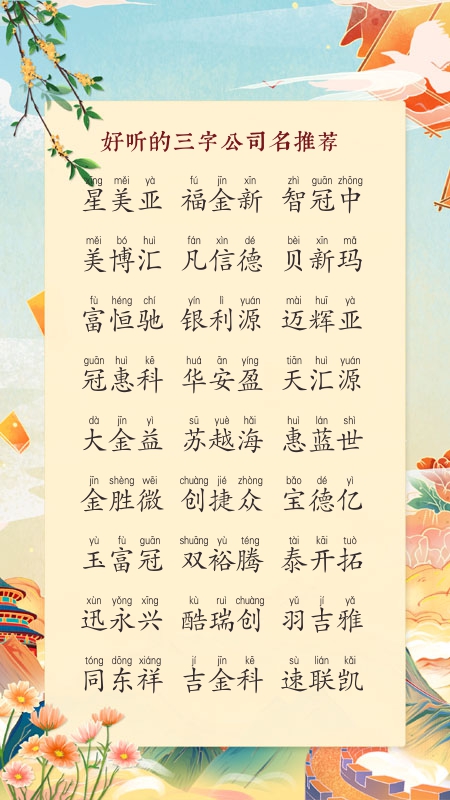 好听的三字公司名推荐
xīng měi yà fú jīn xīn zhì guān zhōng
星美亚 福金新 智冠中
měi bó huì fán xìn dé bèi xīn mǎ
美博汇 凡信德 贝新玛
fù héng chí yín lì yuán mài huī yà
富恒驰 银利源 迈辉亚
guān huì kē huá ān yíng tiān huì yuán
冠惠科 华安盈 天汇源
dà jīn yì sū yuè hǎi huì lán shì
大金益 苏越海 惠蓝世
jīn shèng wēi chuàng jié zhòng bǎo dé yì
金胜微 创捷众 宝德亿
yù fù guān shuāng yù téng tài kāi tuò
玉富冠 双裕腾 泰开拓
xùn yǒng xīng kù ruì chuàng yǔ jí yǎ
迅永兴 酷瑞创 羽吉雅
tóng dōng xiáng jí jīn kē sù lián kǎi
同东祥 吉金科 速联凯